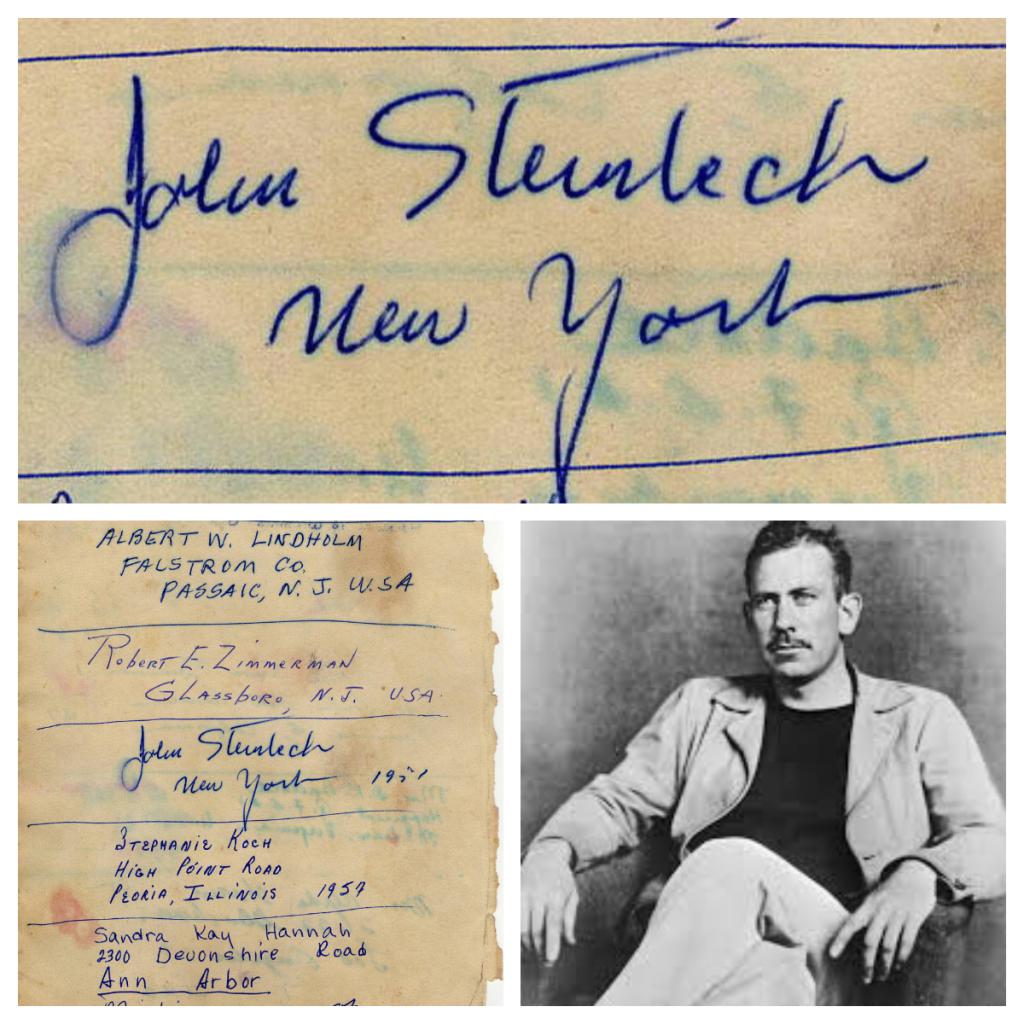 John Steinbeck
New York
ALBERT W. LINDHOLM
FALSTROM CO.
PASSAIC, N. J. U.S.A
Robert E. Zimmerman
Glassboro, N.J. USA.
John Steinbeck
New York 1957
STEPHANIE KOCH
HIGH POINT ROAD
PEORIA, ILLINOIS 1957
Sandra Kay Hannah
2300 Devonshire Road
Ann Arbor